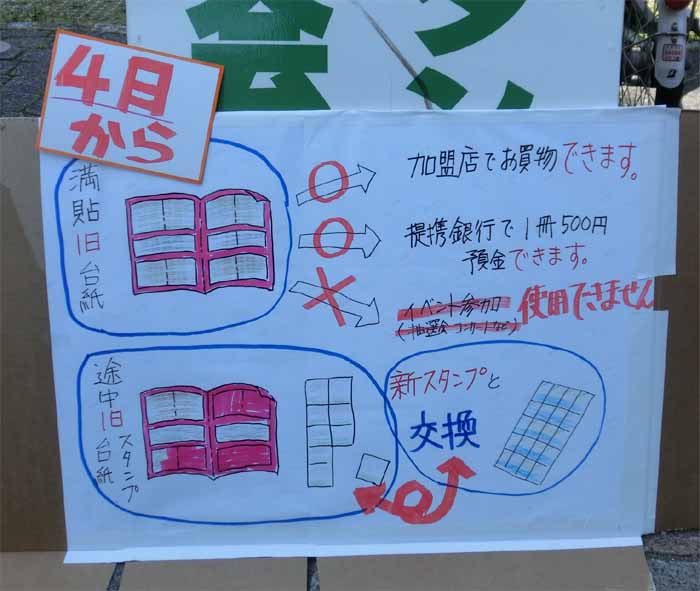 会
タン
4日
から
満貼旧台紙
加盟店でお買物できます。
提携銀行で1冊500円
預金できます。
イベント参加
(抽選会コンサートなど)
使用できません
途中旧台紙
スタンプ
新スタンプと
交換